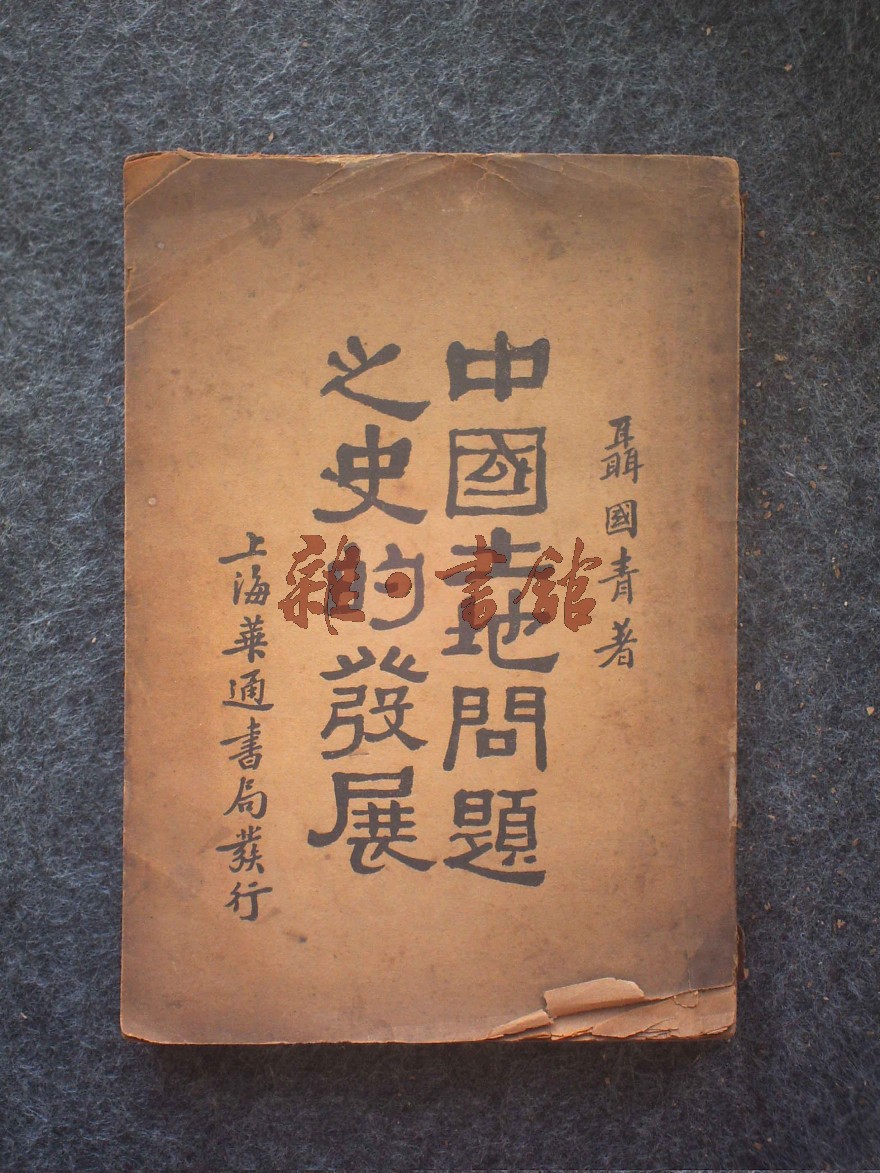 聶國青著
中國土地問題
之史的發展
上海華通書局發行
雜·書館